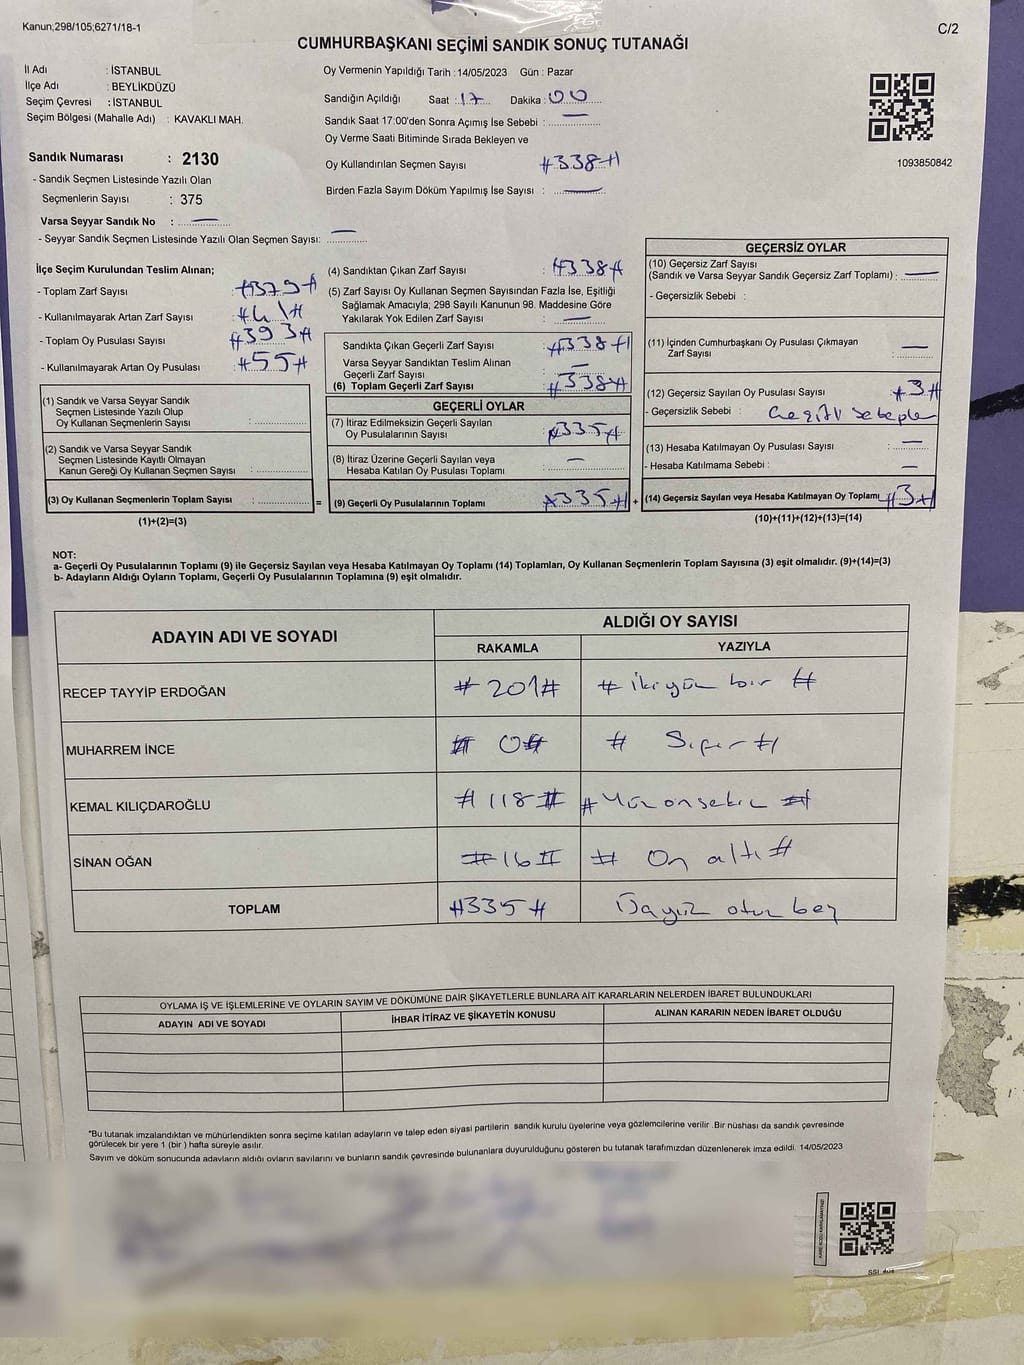 Kanun;298/105;6271/18-1
C/2
CUMHURBAŞKANI SEÇİMİ SANDIK SONUÇ TUTANAĞI
İl Adı : İSTANBUL
İlçe Adı : BEYLİKDÜZÜ
Seçim Çevresi : İSTANBUL
Seçim Bölgesi (Mahalle Adı) : KAVAKLI MAH.
Sandık Numarası : 2130
- Sandık Seçmen Listesinde Yazılı Olan
Seçmenlerin Sayısı : 375
Varsa Seyyar Sandık No :
- Seyyar Sandık Seçmen Listesinde Yazılı Olan Seçmen Sayısı:
Oy Vermenin Yapıldığı Tarih : 14/05/2023 Gün : Pazar
Sandığın Açıldığı Saat : 17 Dakika : 00
Sandık Saat 17:00'den Sonra Açımış İse Sebebi :
Oy Verme Saati Bitiminde Sırada Bekleyen ve
Oy Kullandırılan Seçmen Sayısı #338#
Birden Fazla Sayım Döküm Yapılmış İse Sayısı :
1093850842
İlçe Seçim Kurulundan Teslim Alınan;
- Toplam Zarf Sayısı : #379#
- Kullanılmayarak Artan Zarf Sayısı : #41#
- Toplam Oy Pusulası Sayısı : #393#
- Kullanılmayarak Artan Oy Pusulası : #55#
(1) Sandık ve Varsa Seyyar Sandık
Seçmen Listesinde Yazılı Olup
Oy Kullanan Seçmenlerin Sayısı :
(2) Sandık ve Varsa Seyyar Sandık
Seçmen Listesinde Kayıtlı Olmayan
Kanun Gereği Oy Kullanan Seçmen Sayısı :
(3) Oy Kullanan Seçmenlerin Toplam Sayısı : =
(1)+(2)=(3)
(4) Sandıktan Çıkan Zarf Sayısı : #338#
(5) Zarf Sayısı Oy Kullanan Seçmen Sayısından Fazla İse, Eşitliği
Sağlamak Amacıyla; 298 Sayılı Kanunun 98. Maddesine Göre
Yakılarak Yok Edilen Zarf Sayısı :
Sandıkta Çıkan Geçerli Zarf Sayısı : #338#
Varsa Seyyar Sandıktan Teslim Alınan
Geçerli Zarf Sayısı :
(6) Toplam Geçerli Zarf Sayısı : #338#
GEÇERLİ OYLAR
(7) İtiraz Edilmeksizin Geçerli Sayılan
Oy Pusulalarının Sayısı : #335#
(8) İtiraz Üzerine Geçerli Sayılan veya
Hesaba Katılan Oy Pusulası Toplamı :
(9) Geçerli Oy Pusulalarının Toplamı #335# +
GEÇERSİZ OYLAR
(10) Geçersiz Zarf Sayısı
(Sandık ve Varsa Seyyar Sandık Geçersiz Zarf Toplamı) :
- Geçersizlik Sebebi :
(11) İçinden Cumhurbaşkanı Oy Pusulası Çıkmayan
Zarf Sayısı :
(12) Geçersiz Sayılan Oy Pusulası Sayısı : #3#
- Geçersizlik Sebebi : Çeşitli sebepler
(13) Hesaba Katılmayan Oy Pusulası Sayısı :
- Hesaba Katılmama Sebebi :
(14) Geçersiz Sayılan veya Hesaba Katılmayan Oy Toplamı #3#
(10)+(11)+(12)+(13)=(14)
NOT:
a- Geçerli Oy Pusulalarının Toplamı (9) ile Geçersiz Sayılan veya Hesaba Katılmayan Oy Toplamı (14) Toplamları, Oy Kullanan Seçmenlerin Toplam Sayısına (3) eşit olmalıdır. (9)+(14)=(3)
b- Adayların Aldığı Oyların Toplamı, Geçerli Oy Pusulalarının Toplamına (9) eşit olmalıdır.
ADAYIN ADI VE SOYADI
ALDIĞI OY SAYISI
RAKAMLA YAZIYLA
RECEP TAYYİP ERDOĞAN #201# # ikiyüz bir #
MUHARREM İNCE # 0# # Sıfır #
KEMAL KILIÇDAROĞLU #118# #Yüz onsekiz #
SİNAN OĞAN #16# # On altı #
TOPLAM #335# Üçyüz otuz beş
OYLAMA İŞ VE İŞLEMLERİNE VE OYLARIN SAYIM VE DÖKÜMÜNE DAİR ŞİKAYETLERLE BUNLARA AİT KARARLARIN NELERDEN İBARET BULUNDUKLARI
ADAYIN ADI VE SOYADI İHBAR İTİRAZ VE ŞİKAYETİN KONUSU ALINAN KARARIN NEDEN İBARET OLDUĞU
*Bu tutanak imzalandıktan ve mühürlendikten sonra seçime katılan adayların ve talep eden siyasi partilerin sandık kurulu üyelerine veya gözlemcilerine verilir .Bir nüshası da sandık çevresinde
görülecek bir yere 1 (bir ) hafta süreyle asılır.
Sayım ve döküm sonucunda adayların aldığı oyların sayılarını ve bunların sandık çevresinde bulunanlara duyurulduğunu gösteren bu tutanak tarafımızdan düzenlenerek imza edildi. 14/05/2023